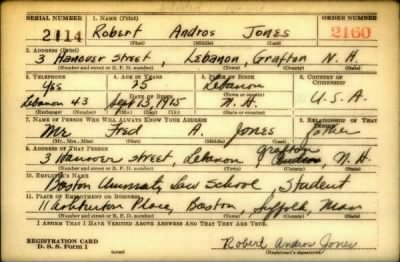 SERIAL NUMBER 1. NAME (Print) ORDER NUMBER
2114 Robert Andros Jones 2160
(First) (Middle) (Last)
2. ADDRESS (Print)
3 Hanover Street, Lebanon, Grafton N. H.
(Number and street or R. F. D. number) (Town) (County) (State)
3. TELEPHONE 4. AGE IN YEARS 5. PLACE OF BIRTH 6. COUNTRY OF CITIZENSHIP
Yes 25 Lebanon
DATE OF BIRTH
Lebanon 43 Sept 13, 1915 N. H. U. S. A.
(Exchange) (Number) (Mo.) (Day) (Yr.) (State or country)
7. NAME OF PERSON WHO WILL ALWAYS KNOW YOUR ADDRESS 8. RELATIONSHIP OF THAT PERSON
Mr Fred A. Jones Father
(Mr., Mrs., Miss) (First) (Middle) (Last)
9. ADDRESS OF THAT PERSON
Grafton
3 Hanover Street, Lebanon N. H.
(Number and street or R. F. D. number) (Town) (County) (State)
10. EMPLOYER'S NAME
Boston University Law School, Student
11. PLACE OF EMPLOYMENT OR BUSINESS
11 Ashburton Place, Boston Suffolk, Mass
(Number and street or R. F. D. number) (Town) (County) (State)
I AFFIRM THAT I HAVE VERIFIED ABOVE ANSWERS AND THAT THEY ARE TRUE.
REGISTRATION CARD
D. S. S. Form 1 (over) Robert Andros Jones
(Registrant's signature)